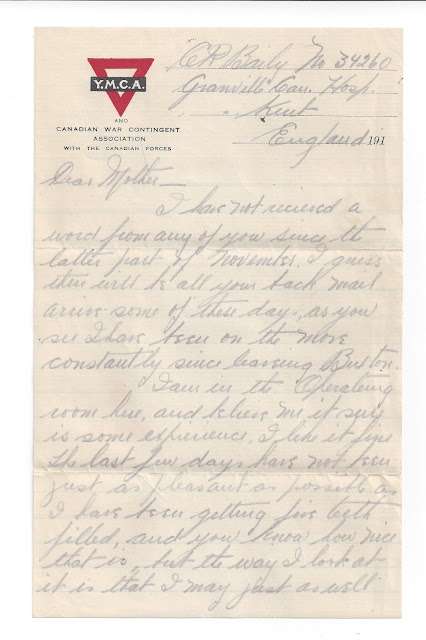 C R Baily No 34260
Granville Can. Hosp.
Kent
England 191
Y.M.C.A.
AND
CANADIAN WAR CONTINGENT
ASSOCIATION
WITH THE CANADIAN FORCES
Dear Mother
I have not recieved a
word from any of you since the
latter part of November. I guess
there will be all your back mail
arrive some of these days, as you
see I have been on the move
constantly since leaving Buxton.
I am in the Operating
room here, and believe me it sure
is some experience, I like it fine
The last few days have not been
just as pleasant as possible as
I have been getting five teeth
filled, and you know how nice
that is, but the way I look at
it is that I may just as well